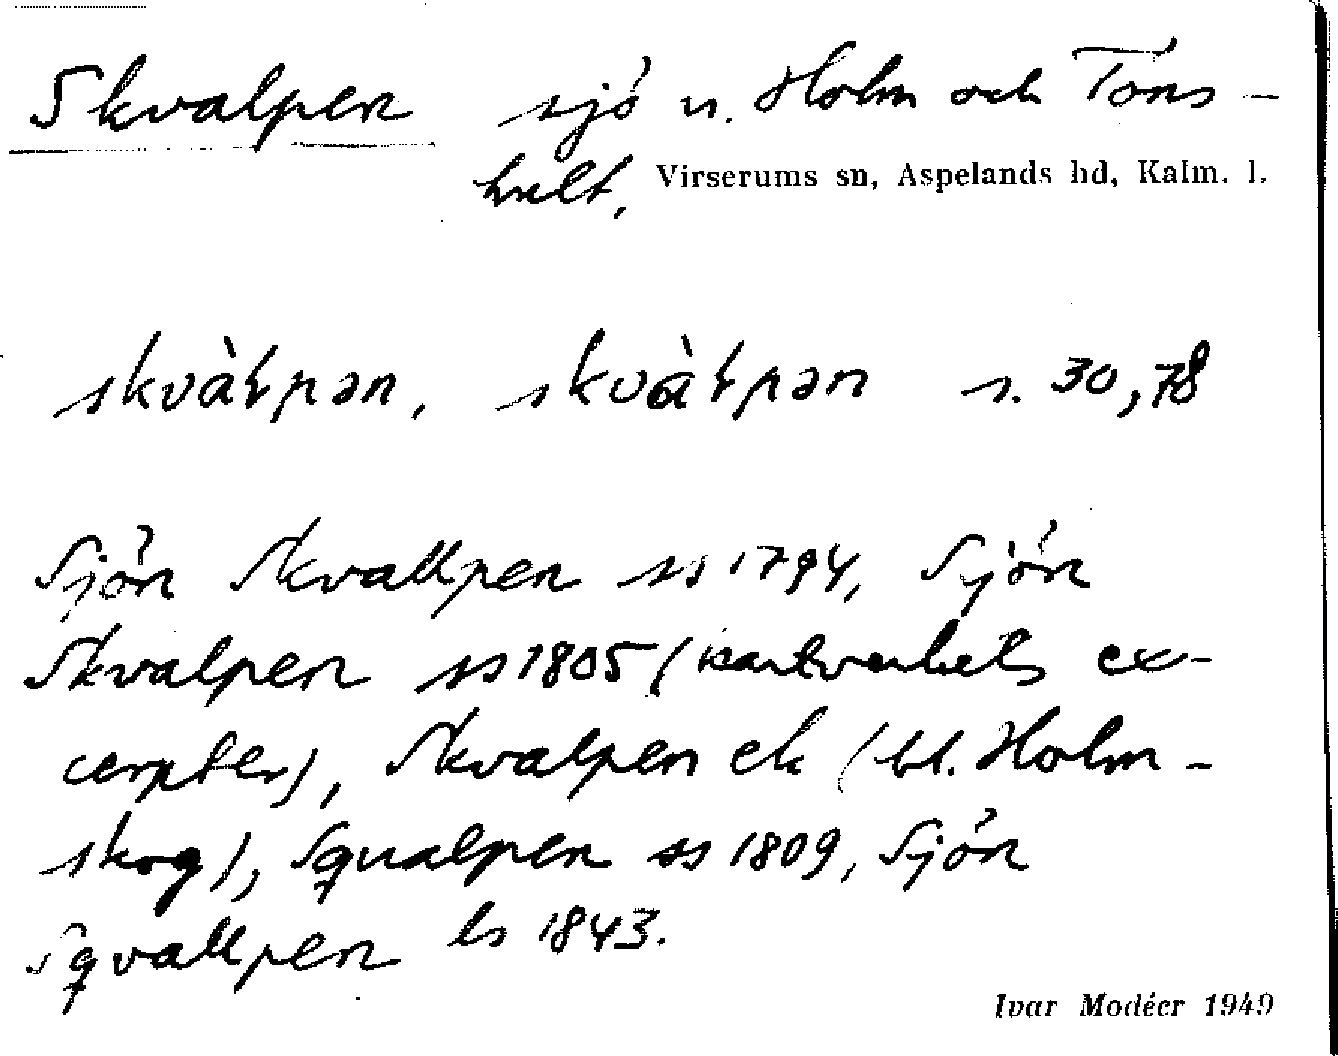 Skvalpen sjö u. Holm och Töns-
hult, Virserums sn, Aspelands hd, Kalm. l.
skvàɫpən, skvàɫpən s. 30,78
Sjön Skvallpen ss 1794, Sjön
Skvalpen ss 1805 (kartverkets ex-
cerpter), Skvalpen ek (bl. Holm-
skog), Squalpen ss 1809, Sjön
Sqvallpen ls 1843.
Ivar Modéer 1949